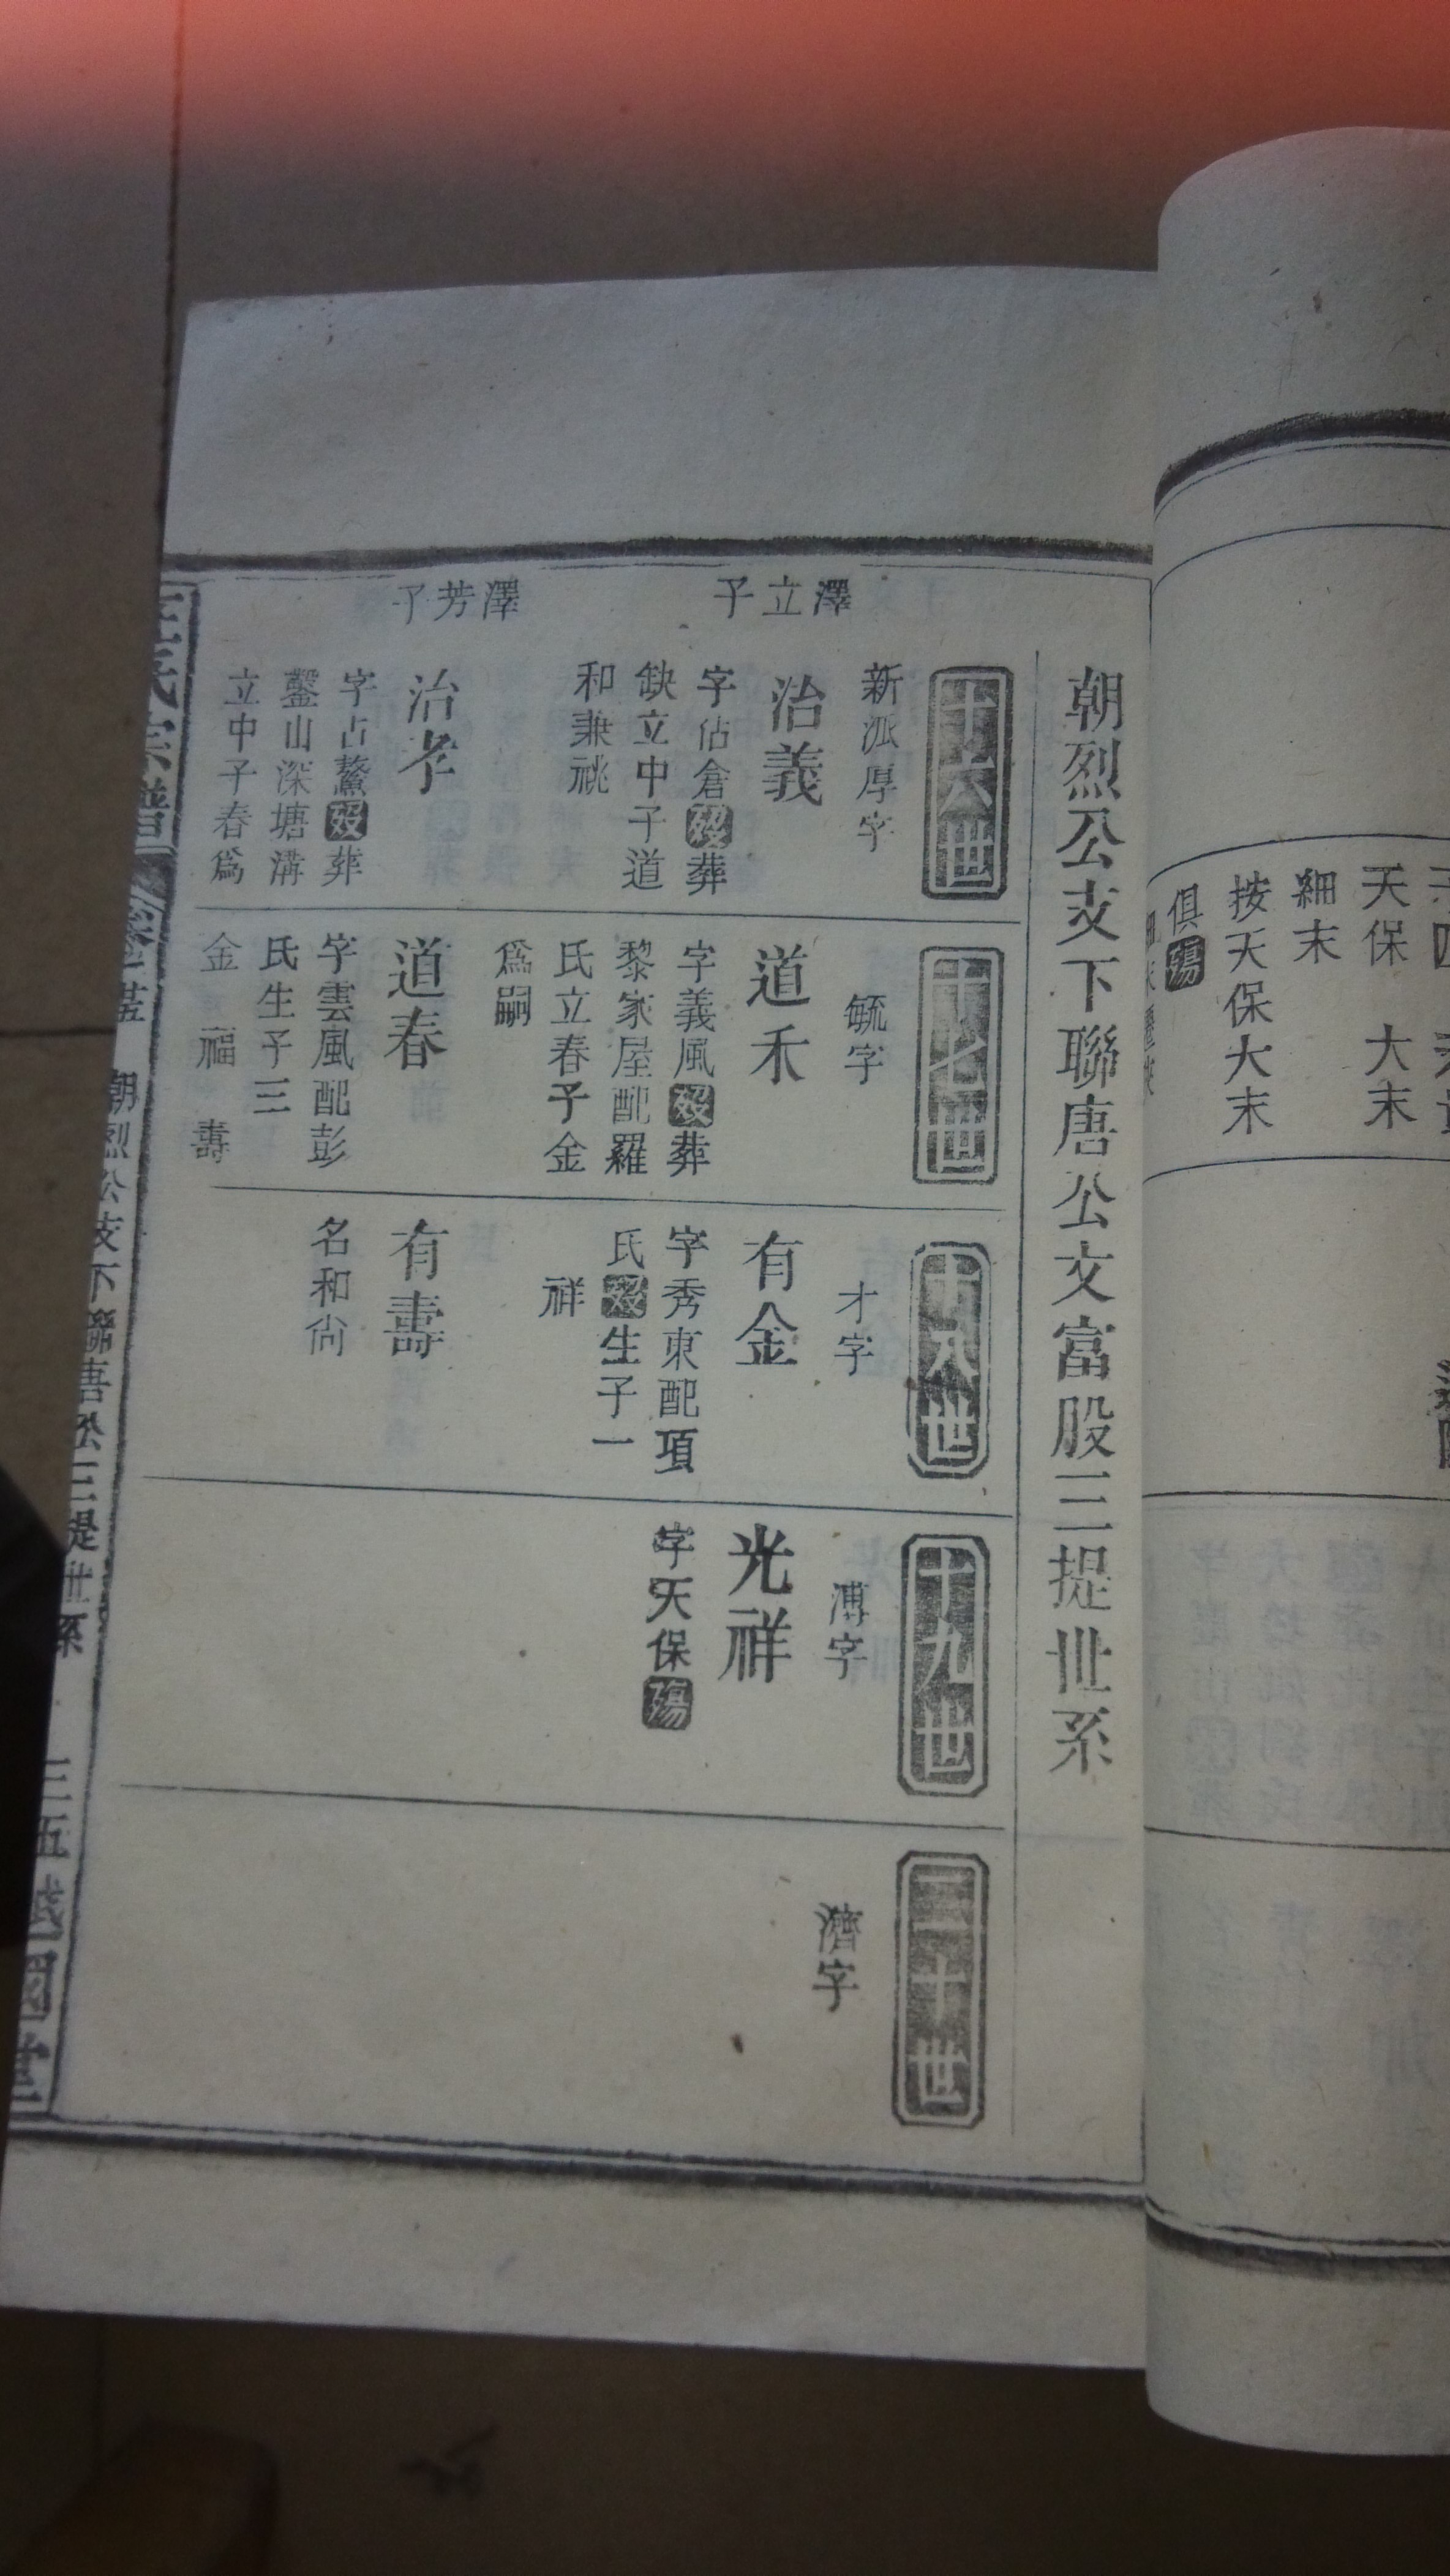 天保 大末
細末
按天保大末
俱殤
朝烈公支下聯唐公文富股三提世系
十六世
新派厚字
澤立子
治義
字佔倉歿葬
缺立中子道
和兼祧
澤芳子
治孝
字占鰲歿葬
鑿山深塘溝
立中子春爲
十七世
毓字
道禾
字義風歿葬
黎家屋配羅
氏立春子金
爲嗣
道春
字雲風配彭
氏生子三
金 福 壽
十八世
才字
有金
字秀東配項
氏歿生子一
祥
有壽
名和尙
十九世
溥字
光祥
字天保殤
二十世
濟字
氏宗譜
朝烈公支下聯唐公三提世系
三五
越國堂